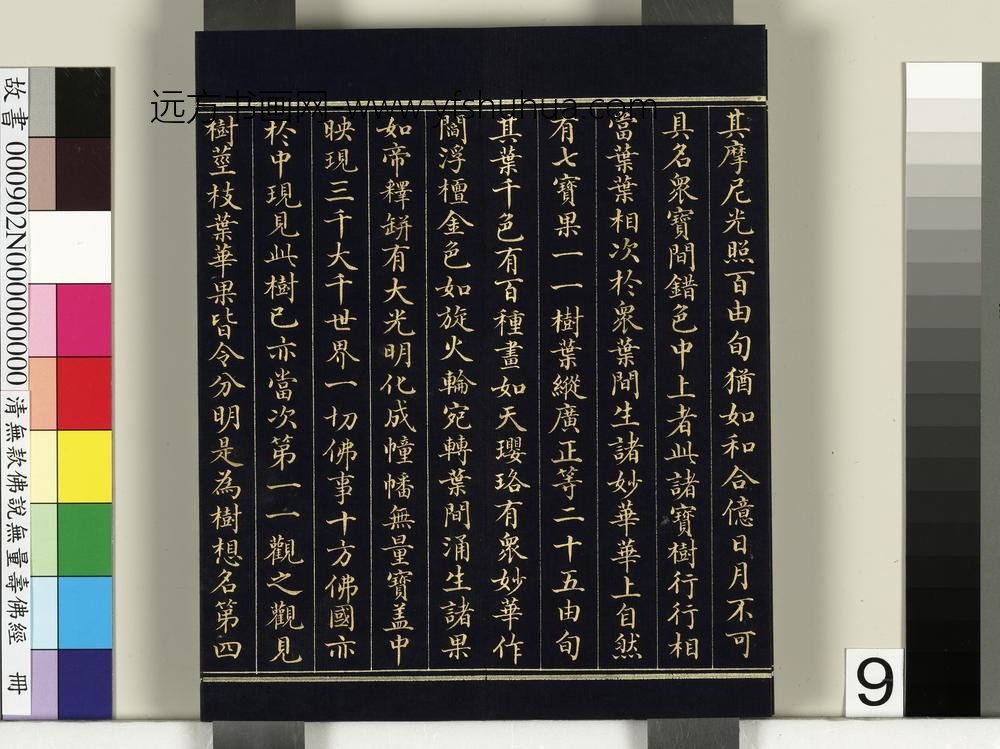 其摩尼光照百由旬猶如和合億日月不可
具名眾寶間錯色中上者此諸寶樹行行相
當葉葉相次於眾葉間生諸妙華華上自然
有七寶果一一樹葉縱廣正等二十五由旬
其葉千色有百種畫如天瓔珞有眾妙華作
閻浮檀金色如旋火輪宛轉葉間涌生諸果
如帝釋缾有大光明化成幢幡無量寶盖中
映現三千大千世界一切佛事十方佛國亦
於中現見此樹已亦當次第一一觀之觀見
樹莖枝葉華果皆令分明是為樹想名第四
远方书画网 www.yfshuhua.com
故書 000902N000000000 清無款佛說無量壽佛經 冊
9